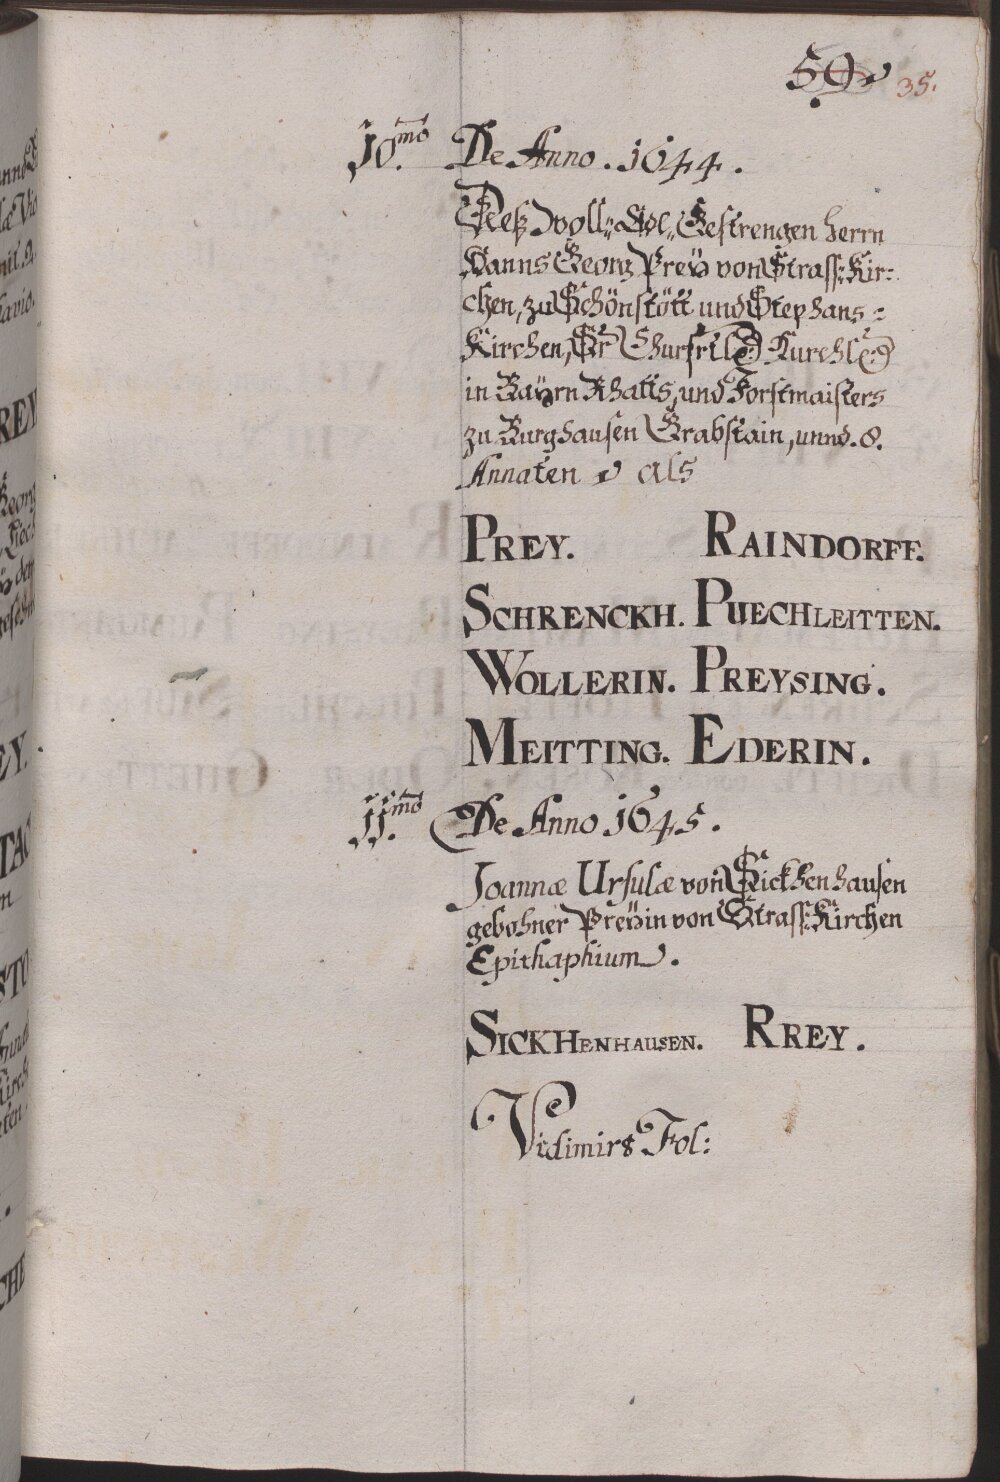 59
35.
10.mo De Anno . 1644 .
Deß Woll„ Edl„ Gestrengen Herrn
Hanns Georg Preÿ von Strass: Kir=
chen, zu Schönstött und Stephans=
Kirchen, Sr Churfrtl: Durchl:
in Bayrn Rhatts, und Forstmaisters
zu Burghausen Grabstain, unnd . 8.
Annaten als
PREY. RAINDORFF.
SCHRENCKH. PUECHLEITTEN.
WOLLERIN. PREYSING.
MEITTING. EDERIN.
11.mo De Anno 1645 .
Joannæ Ursulæ von Sickhenhausen
gebohner Preÿin von Strass: Kirchen
Epithaphium .
SICKHENHAUSEN. RREY .
Vidimirs Fol: